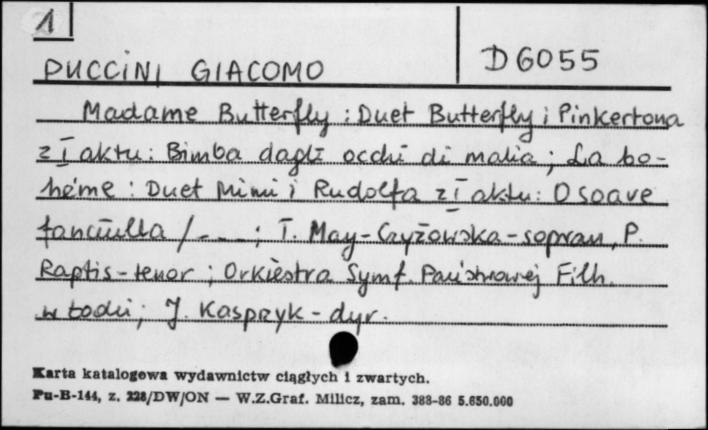 1
PUCCINI GIACOMO
D 6055
Madame Butterfly : Duet Butterfly i Pinkertona
z I aktu : Bimba dagli occhi di malia ; La bo-
héme : Duet Mimi i Rudolfa z I aktu : O soave
fanciulla / _ _ _ ; T. May-Czyżowska - sopran, P.
Raptis - tenor ; Orkiestra Symf. Państwowej Filh.
w Łodzi ; J. Kasprzyk - dyr.
Karta katalogowa wydawnictw ciągłych i zwartych.
Pu-B-144, z. 228/DW/ON — W.Z.Graf. Milicz, zam. 388-86 5.650.000